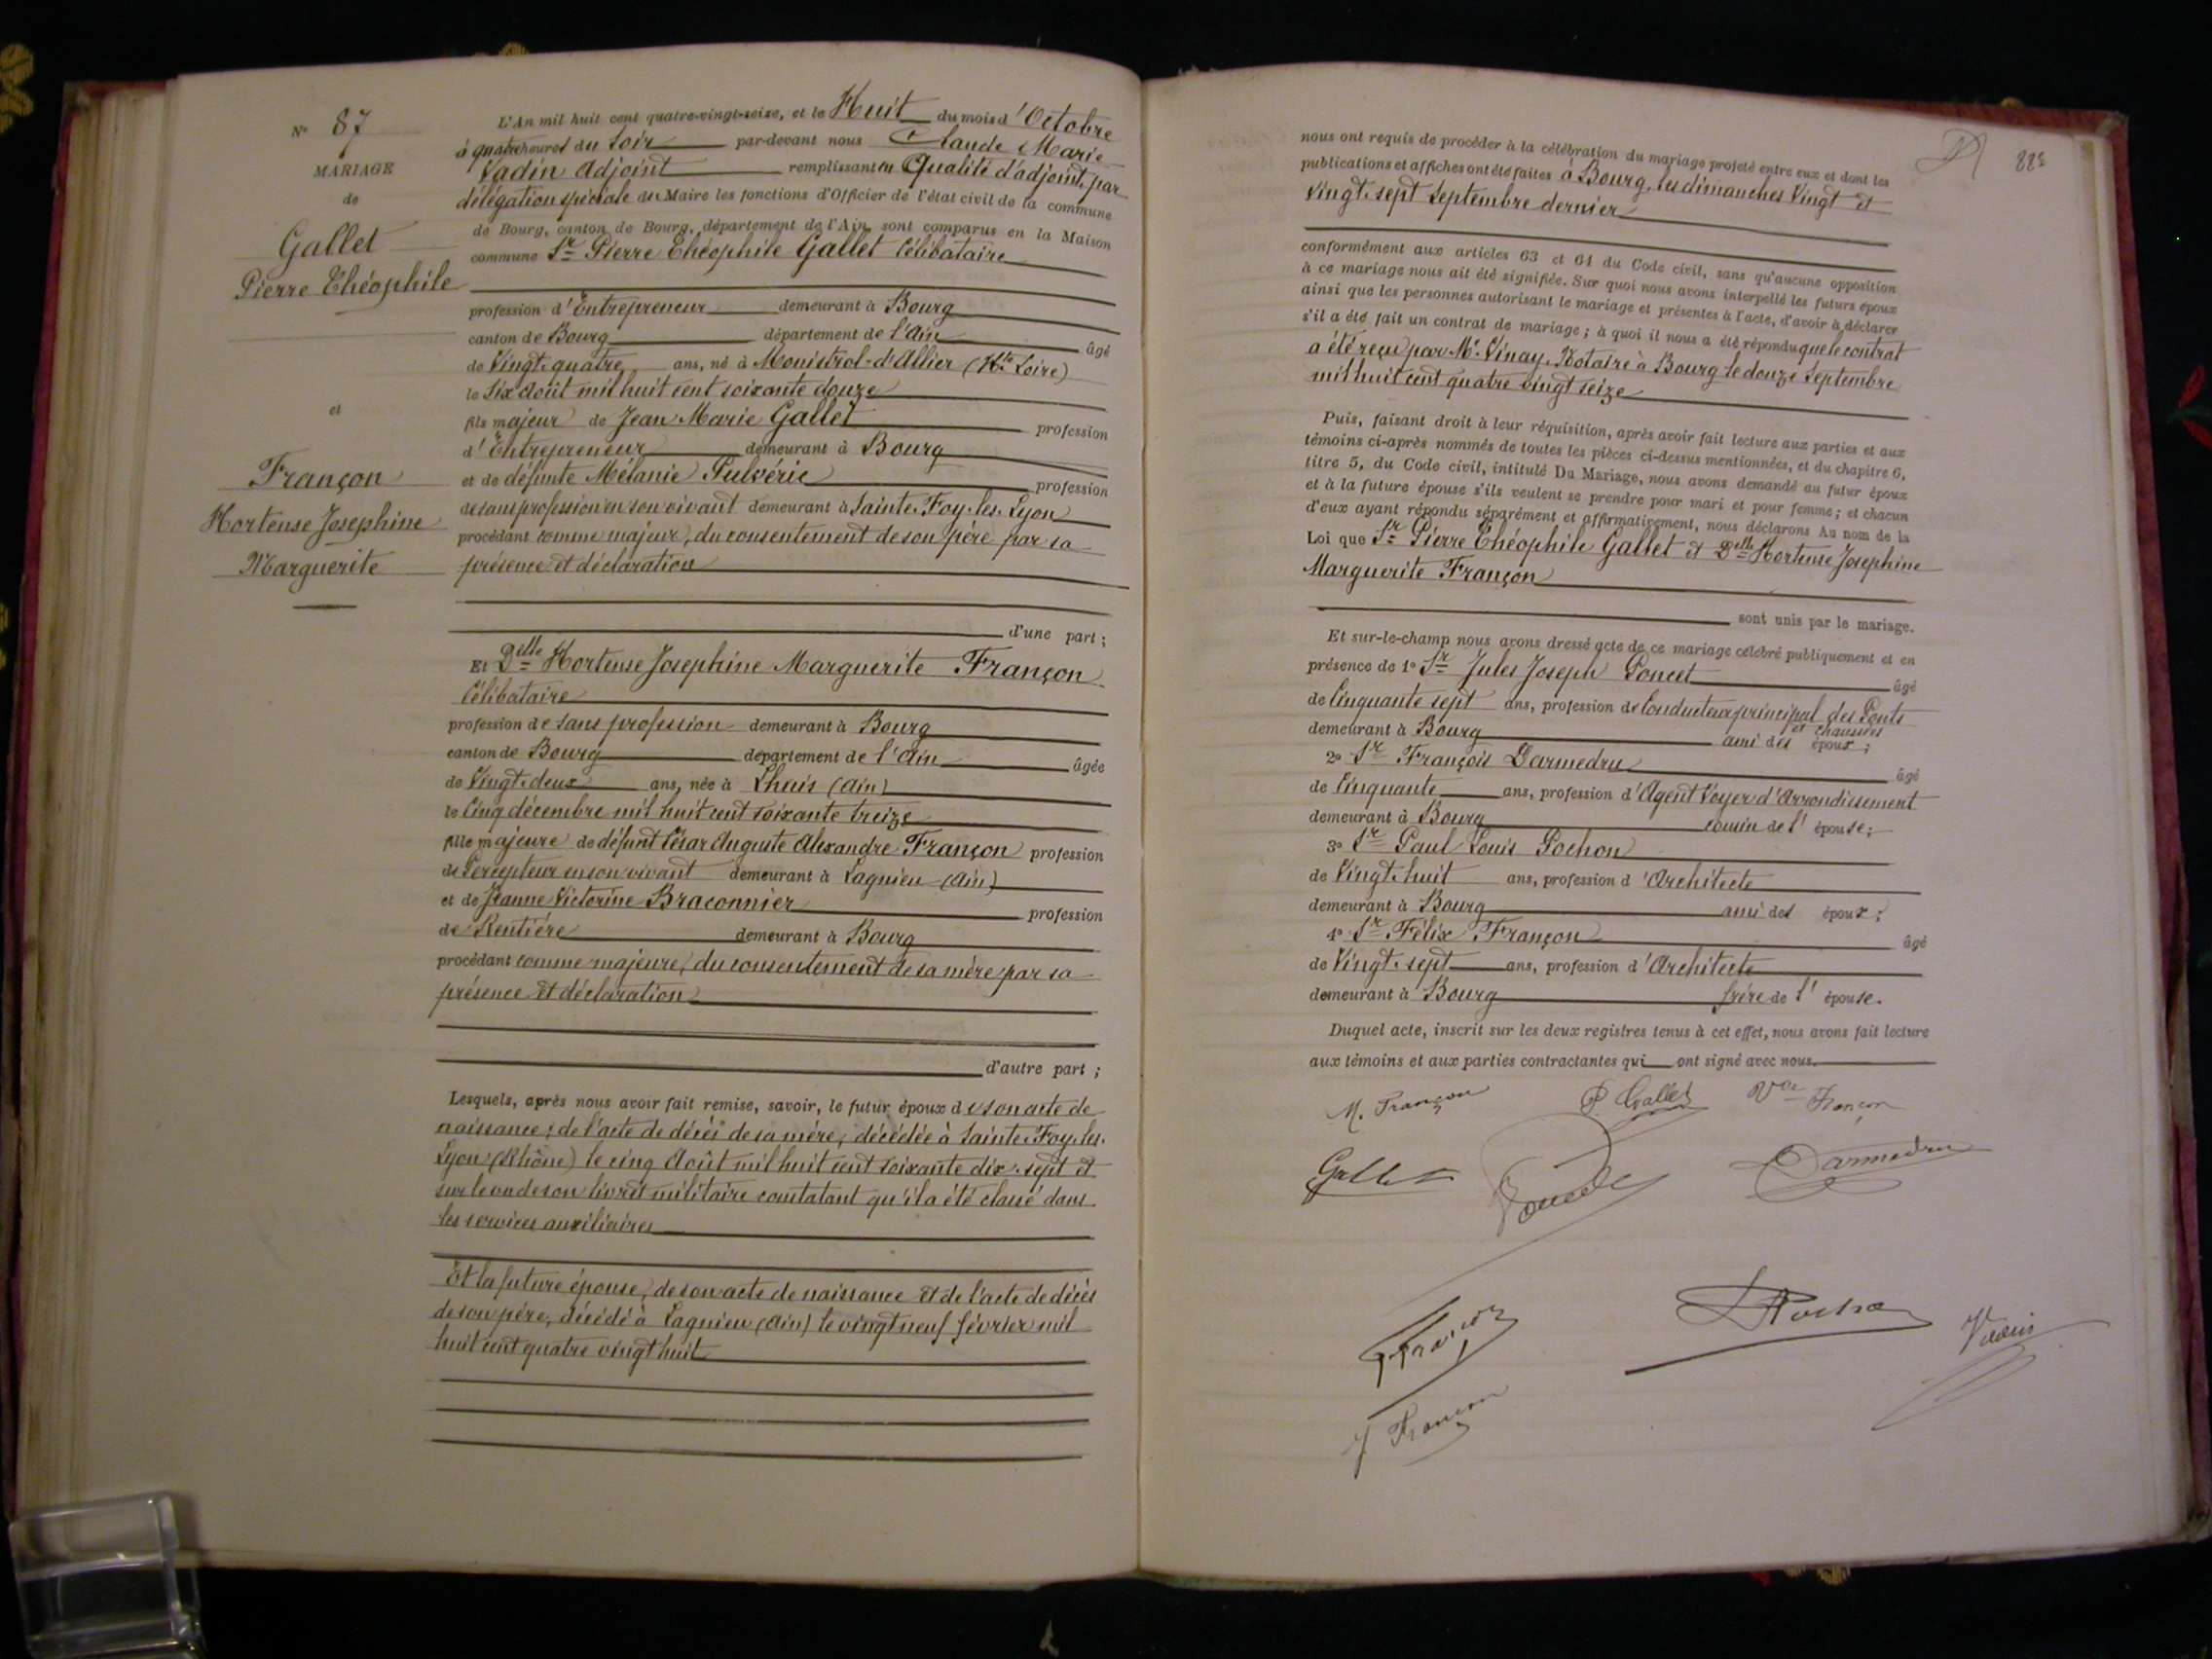 N° 87
MARIAGE
de
Gallet
Pierre Théophile
et
Françon
Hortense Josephine
Marguerite
L'An mil huit cent quatre-vingt-seize, et le Huit du mois d'Octobre
à quatre heures du soir par-devant nous Claude Marie
Vadin Adjoint remplissant en Qualité d'adjoint, par
délégation spéciale du Maire les fonctions d'Officier de l'état civil de la commune
de Bourg, canton de Bourg, département de l'Ain, sont comparus en la Maison
commune Sr Pierre Théophile Gallet Célibataire
profession d'Entrepreneur demeurant à Bourg
canton de Bourg département de l'Ain âgé
de Vingt-quatre ans, né à Monistrol-d'Allier (Hte Loire)
le Six Août mil huit cent soixante douze
fils majeur de Jean Marie Gallet profession
d'Entrepreneur demeurant à Bourg
et de défunte Mélanie Pulvérie profession
de sans profession en son vivant demeurant à Sainte-Foy-les-Lyon
procédant comme majeur, du consentement de son père par sa
présence et déclaration
d'une part ;
Et Delle Hortense Josephine Marguerite Françon
Célibataire
profession de sans profession demeurant à Bourg
canton de Bourg département de l'Ain âgée
de Vingt-deux ans, née à Lhuis (Ain)
le Cinq décembre mil huit cent soixante treize
fille majeure de défunt César Auguste Alexandre Françon profession
de Percepteur en son vivant demeurant à Lagnieu (Ain)
et de Jeanne Victorine Braconnier profession
de Rentière demeurant à Bourg
procédant comme majeure, du consentement de sa mère par sa
présence et déclaration
d'autre part ;
Lesquels, après nous avoir fait remise, savoir, le futur époux de son acte de
naissance ; de l'acte de décès de sa mère, décédée à Sainte-Foy-les-
Lyon (Rhône) le cinq Août mil huit cent soixante dix-sept et
sur le vu de son livret militaire constatant qu'il a été classé dans
les services auxiliaires
Et la future épouse, de son acte de naissance et de l'acte de décès
de son père, décédé à Lagnieu (Ain) le vingt neuf février mil
huit cent quatre vingt huit
88
nous ont requis de procéder à la célébration du mariage projeté entre eux et dont les
publications et affiches ont été faites à Bourg, les dimanches Vingt et
Vingt-sept Septembre dernier
conformément aux articles 63 et 64 du Code civil, sans qu'aucune opposition
à ce mariage nous ait été signifiée. Sur quoi nous avons interpellé les futurs époux
ainsi que les personnes autorisant le mariage et présentes à l'acte, d'avoir à déclarer
s'il a été fait un contrat de mariage ; à quoi il nous a été répondu que le contrat
a été reçu par Me Vinay, Notaire à Bourg le douze Septembre
mil huit cent quatre vingt seize
Puis, faisant droit à leur réquisition, après avoir fait lecture aux parties et aux
témoins ci-après nommés de toutes les pièces ci-dessus mentionnées, et du chapitre 6,
titre 5, du Code civil, intitulé Du Mariage, nous avons demandé au futur époux
et à la future épouse s'ils veulent se prendre pour mari et pour femme ; et chacun
d'eux ayant répondu séparément et affirmativement, nous déclarons Au nom de la
Loi que Sr Pierre Théophile Gallet et Delle Hortense Josephine
Marguerite Françon
sont unis par le mariage.
Et sur-le-champ nous avons dressé acte de ce mariage célébré publiquement et en
présence de 1° Sr Jules Joseph Poncet âgé
de Cinquante sept ans, profession de Conducteur principal des Ponts
et chaussées
demeurant à Bourg ami des époux ;
2° Sr François Darmedru âgé
de Cinquante ans, profession d'Agent Voyer d'Arrondissement
demeurant à Bourg cousin de l'épouse ;
3° Sr Paul Louis Pochon
de Vingt-huit ans, profession d'Architecte
demeurant à Bourg ami des époux ;
4° Sr Félix Françon âgé
de Vingt-sept ans, profession d'Architecte
demeurant à Bourg frère de l'épouse.
Duquel acte, inscrit sur les deux registres tenus à cet effet, nous avons fait lecture
aux témoins et aux parties contractantes qui ont signé avec nous.
M. Françon P. Gallet Vve Françon
Gallet Darmedru
Françon Pochon Vadin
J Françon